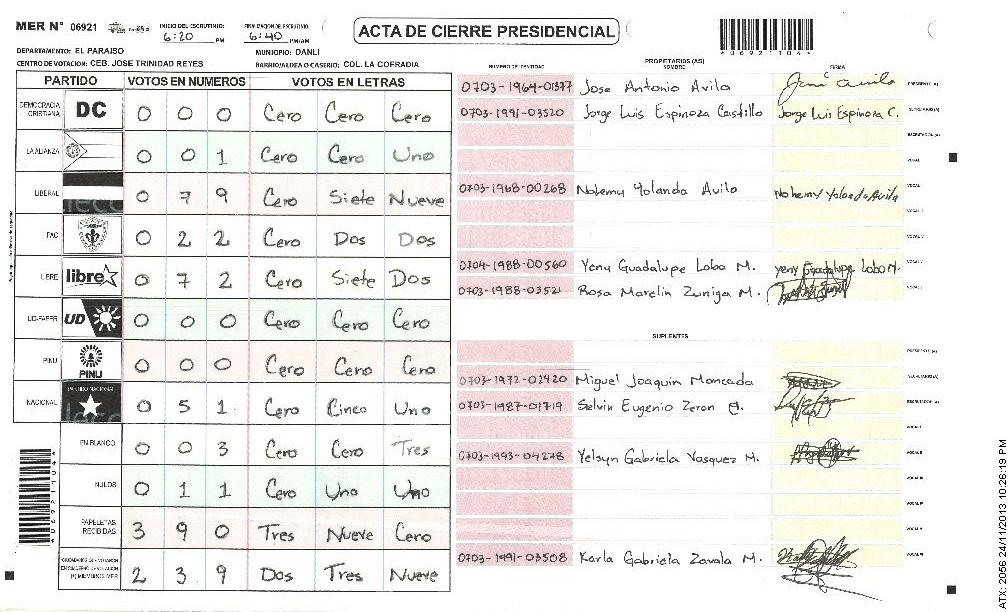 MER N° 06921 INICIO DEL ESCRUTINIO: 6:20 PM FINALIZACION DE ESCRUTINIO: 6:40 PM/AM
ACTA DE CIERRE PRESIDENCIAL
*069211044*
DEPARTAMENTO: EL PARAISO MUNICIPIO: DANLI
CENTRO DE VOTACION: CEB. JOSE TRINIDAD REYES BARRIO/ALDEA O CASERIO: COL. LA COFRADIA
PARTIDO VOTOS EN NUMEROS VOTOS EN LETRAS
DEMOCRACIA CRISTIANA DC 0 0 0 Cero Cero Cero
LA ALIANZA 0 0 1 Cero Cero Uno
LIBERAL 0 7 9 Cero Siete Nueve
PAC 0 2 2 Cero Dos Dos
LIBRE libre 0 7 2 Cero Siete Dos
UD-FAPER UD 0 0 0 Cero Cero Cero
PINU PINU 0 0 0 Cero Cero Cero
NACIONAL PARTIDO NACIONAL 0 5 1 Cero Cinco Uno
EN BLANCO 0 0 3 Cero Cero Tres
NULOS 0 1 1 Cero Uno Uno
PAPELETAS RECIBIDAS 3 9 0 Tres Nueve Cero
2 3 9 Dos Tres Nueve
NUMERO DE IDENTIDAD PROPIETARIOS (AS) NOMBRE FIRMA
0703-1964-01377 Jose Antonio Avila PRESIDENTE (A)
0703-1991-03520 Jorge Luis Espinoza Castillo Jorge Luis Espinoza C. SECRETARIO (A)
ESCRUTADOR (A)
VOCAL I
0703-1968-00268 Nohemy Yolanda Avila Nohemy Yolanda Avila
0704-1988-00560 Yeny Guadalupe Lobo M. yeny Guadalupe Lobo M.
0703-1988-03521 Rosa Marelin Zuniga M.
SUPLENTES
PRESIDENTE (A)
0703-1972-02420 Miguel Joaquin Moncada SECRETARIO (A)
0703-1987-01719 Selvin Eugenio Zeron A. ESCRUTADOR (A)
0703-1993-04278 Yelsyn Gabriela Vasquez M.
0703-1991-03508 Karla Gabriela Zavala M.
ATX: 2056 24/11/2013 10:26:19 PM